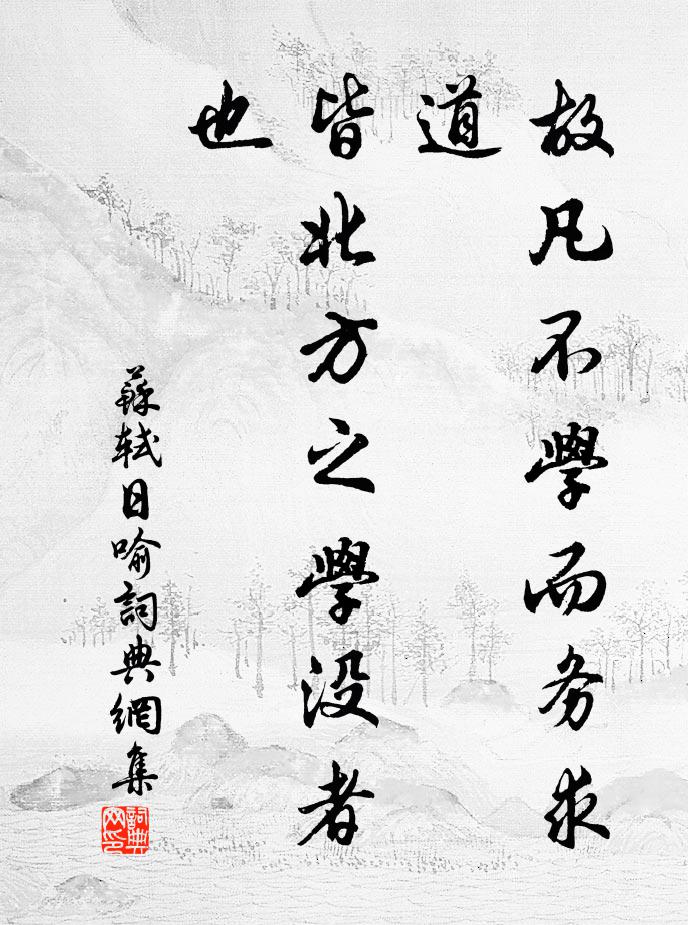 故凡不學而务求
道
皆北方之學没者
也
蘇軾日喻詞典網集
詞典网印